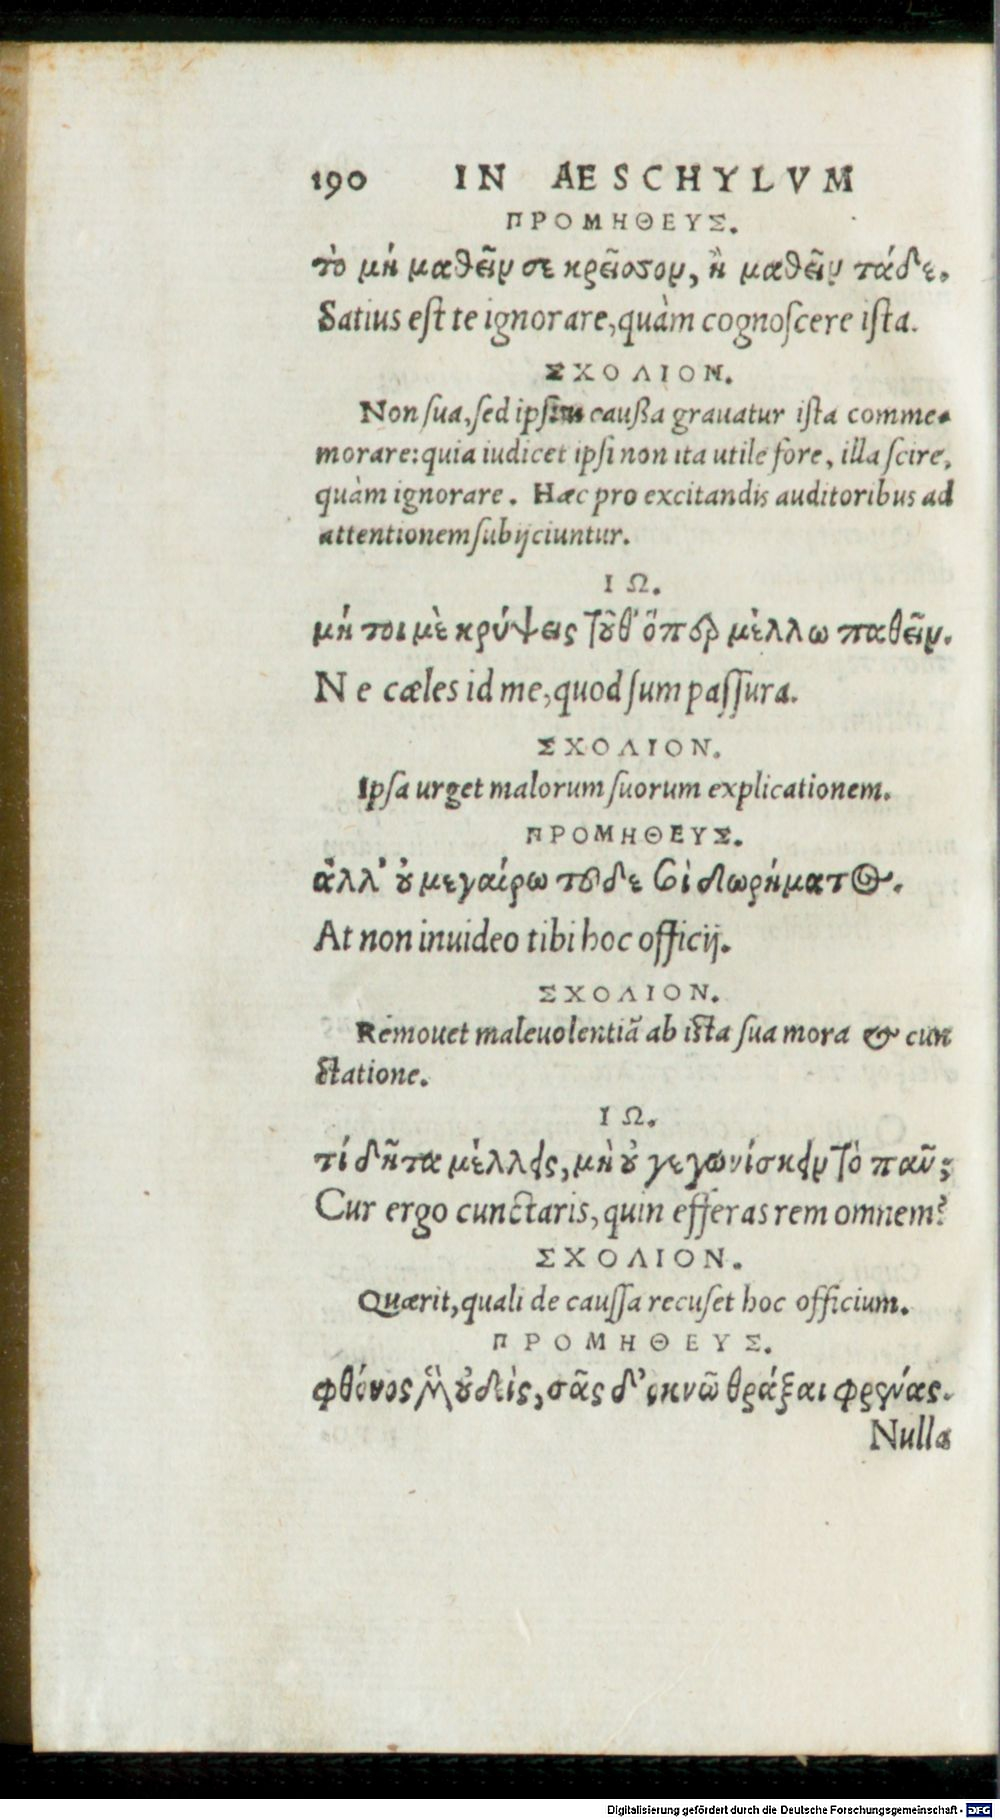 190 IN AESCHYLVM
ΠΡΟΜΗΘΕΥΣ.
τὸ μὴ μαθεῖν σε κρεῖσσον, ἢ μαθεῖν τάδε.
Satius est te ignorare, quàm cognoscere ista.
ΣΧΟΛΙΟΝ.
Non sua, sed caußa grauatur ista comme-
morare: quia iudicet ipsi non ita utile fore, illa scire,
quàm ignorare. Hæc pro excitandis auditoribus ad
attentionem subijciuntur.
ΙΩ.
μή τοι μὲ κρύψεις τοῦθ' ὅπερ μέλλω παθεῖν.
Ne cæles id me, quod sum passura.
ΣΧΟΛΙΟΝ.
Ipsa urget malorum suorum explicationem.
ΠΡΟΜΗΘΕΥΣ.
ἀλλ' οὐ μεγαίρω τοῦδε σοὶ δωρήματος.
At non inuideo tibi hoc officij.
ΣΧΟΛΙΟΝ.
Remouet maleuolentiã ab ista sua mora & cun
ctatione.
ΙΩ.
τί δῆτα μέλλεις, μὴ οὐ γεγωνίσκειν τὸ πᾶν;
Cur ergo cunctaris, quin efferas rem omnem?
ΣΧΟΛΙΟΝ.
Quærit, quali de caussa recuset hoc officium.
ΠΡΟΜΗΘΕΥΣ.
φθόνος μὲν οὐδεὶς, σὰς δ' ὀκνῶ θράξαι φρένας.
Nulla
Digitalisierung gefördert durch die Deutsche Forschungsgemeinschaft - DFG